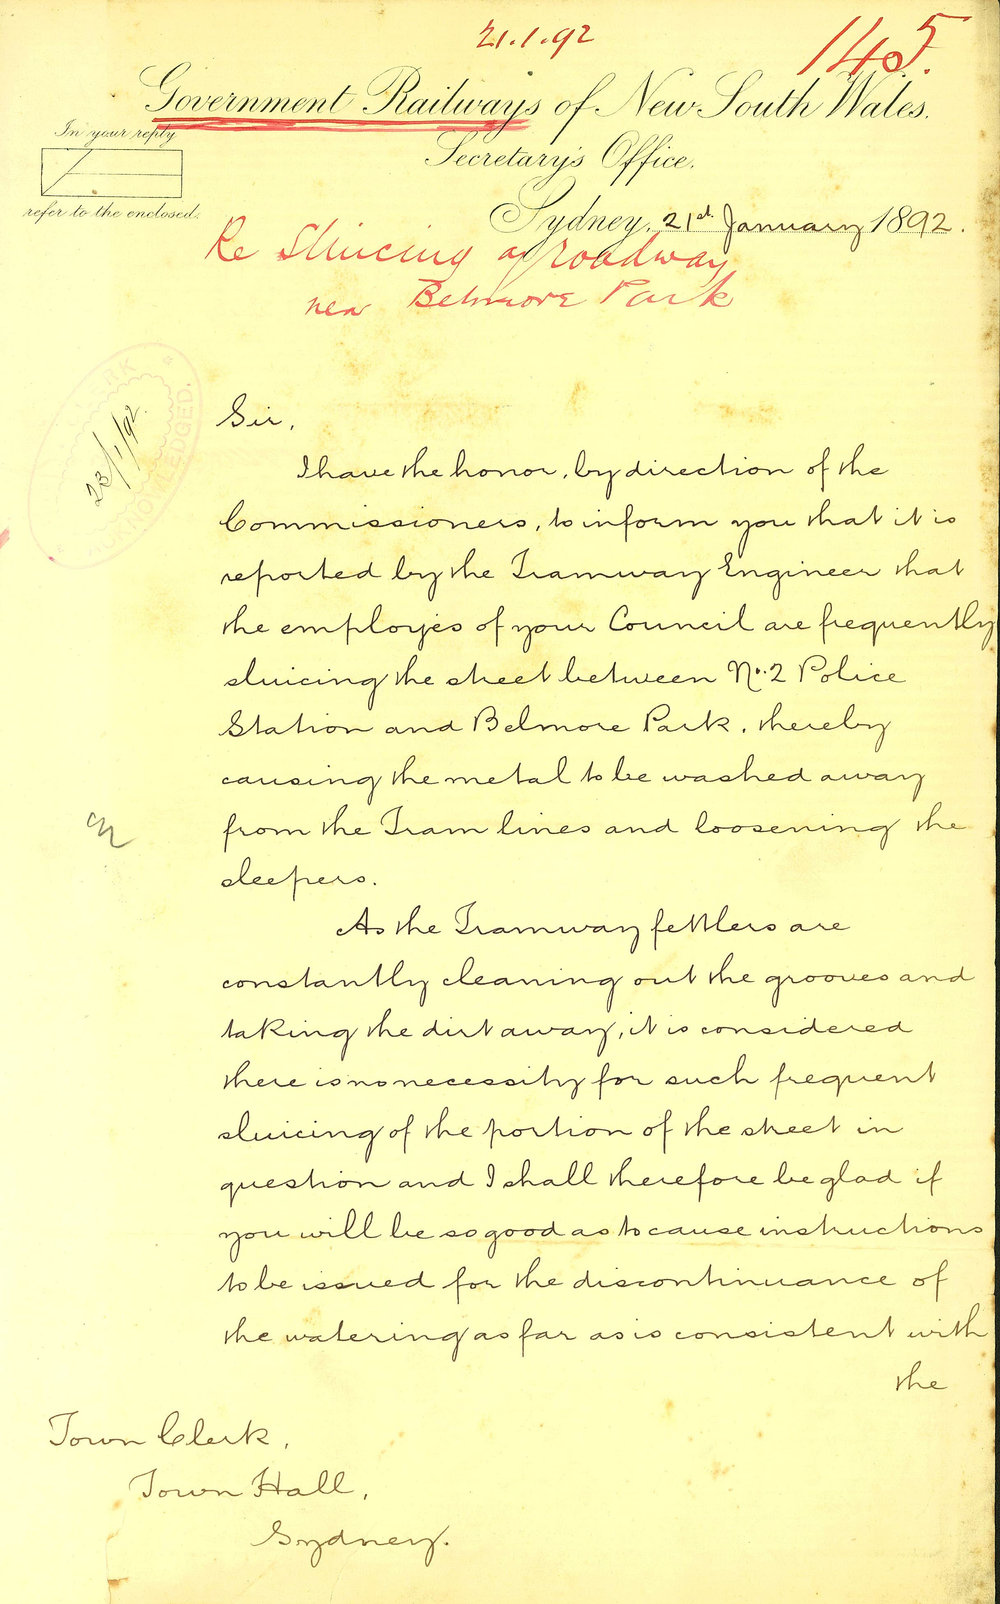 21.1.92
145.
Government Railways of New South Wales.
In your reply
refer to the enclosed.
Secretary's Office.
Sydney, 21st January 1892.
Re Sluicing of roadway
near Belmore Park
CLERK
23/1/92
Sir,
I have the honor, by direction of the
Commissioners, to inform you that it is
reported by the Tramway Engineer that
the employés of your Council are frequently
sluicing the street between No. 2 Police
Station and Belmore Park, thereby
causing the metal to be washed away
from the Tram lines and loosening the
sleepers.
As the Tramway fettlers are
constantly cleaning out the grooves and
taking the dirt away, it is considered
there is no necessity for such frequent
sluicing of the portion of the street in
question and I shall therefore be glad if
you will be so good as to cause instructions
to be issued for the discontinuance of
the watering as far as is consistent with
the
Town Clerk,
Town Hall,
Sydney.